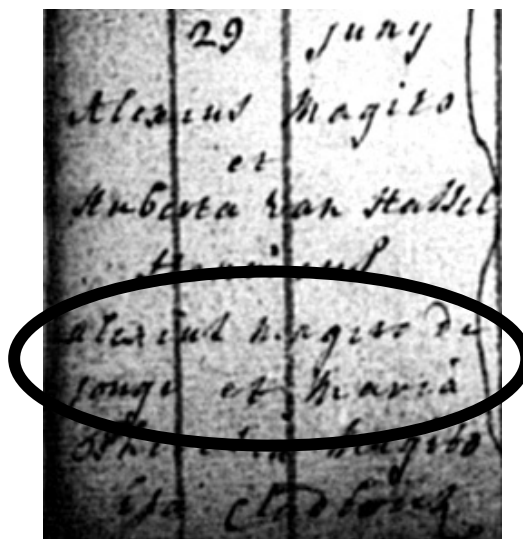 29 juny
Alexius Magito
et
Huberta van Hassel
alexius magito de
jonge et maria
magito